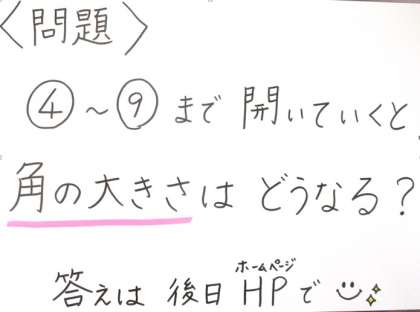 〈問題〉
④～⑨まで開いていくと
角の大きさはどうなる？
ホームページ
答えは後日HPで